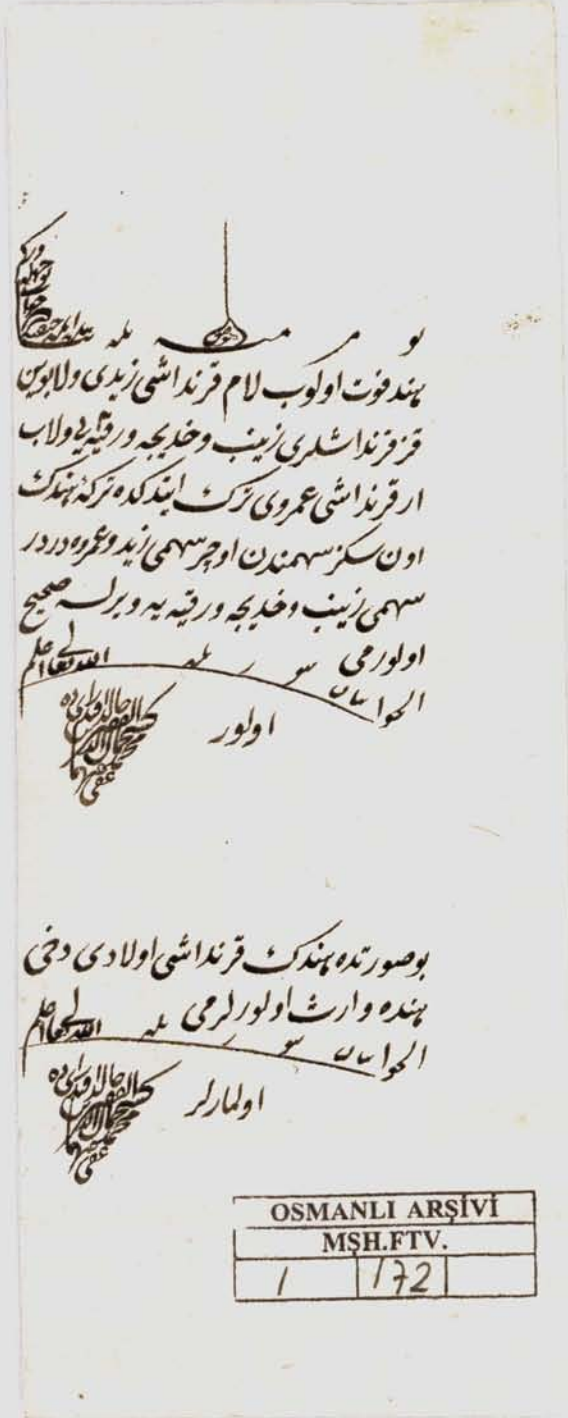 هو
بو مسئله
هند فوت اولوب لام قرنداشی زیدی ولابوین
قز قرنداشلری زینب و خدیجه و رقیه‌یی ولاب
ار قرنداشی عمروی ترک ایتدکده ترکهٔ هندک
اون سکز سهمندن اوچر سهمی زید و عمروه دردر
سهمی زینب و خدیجه و رقیه یه ویرلسه صحیح
اولورمی
الله تعالی اعلم
الجواب
اولور
بو صورتده هندک قرنداشی اولادی دخی
هنده وارث اولورلرمی
الله تعالی اعلم
الجواب
اولمازلر
OSMANLI ARŞİVİ
MŞH.FTV.
1 172